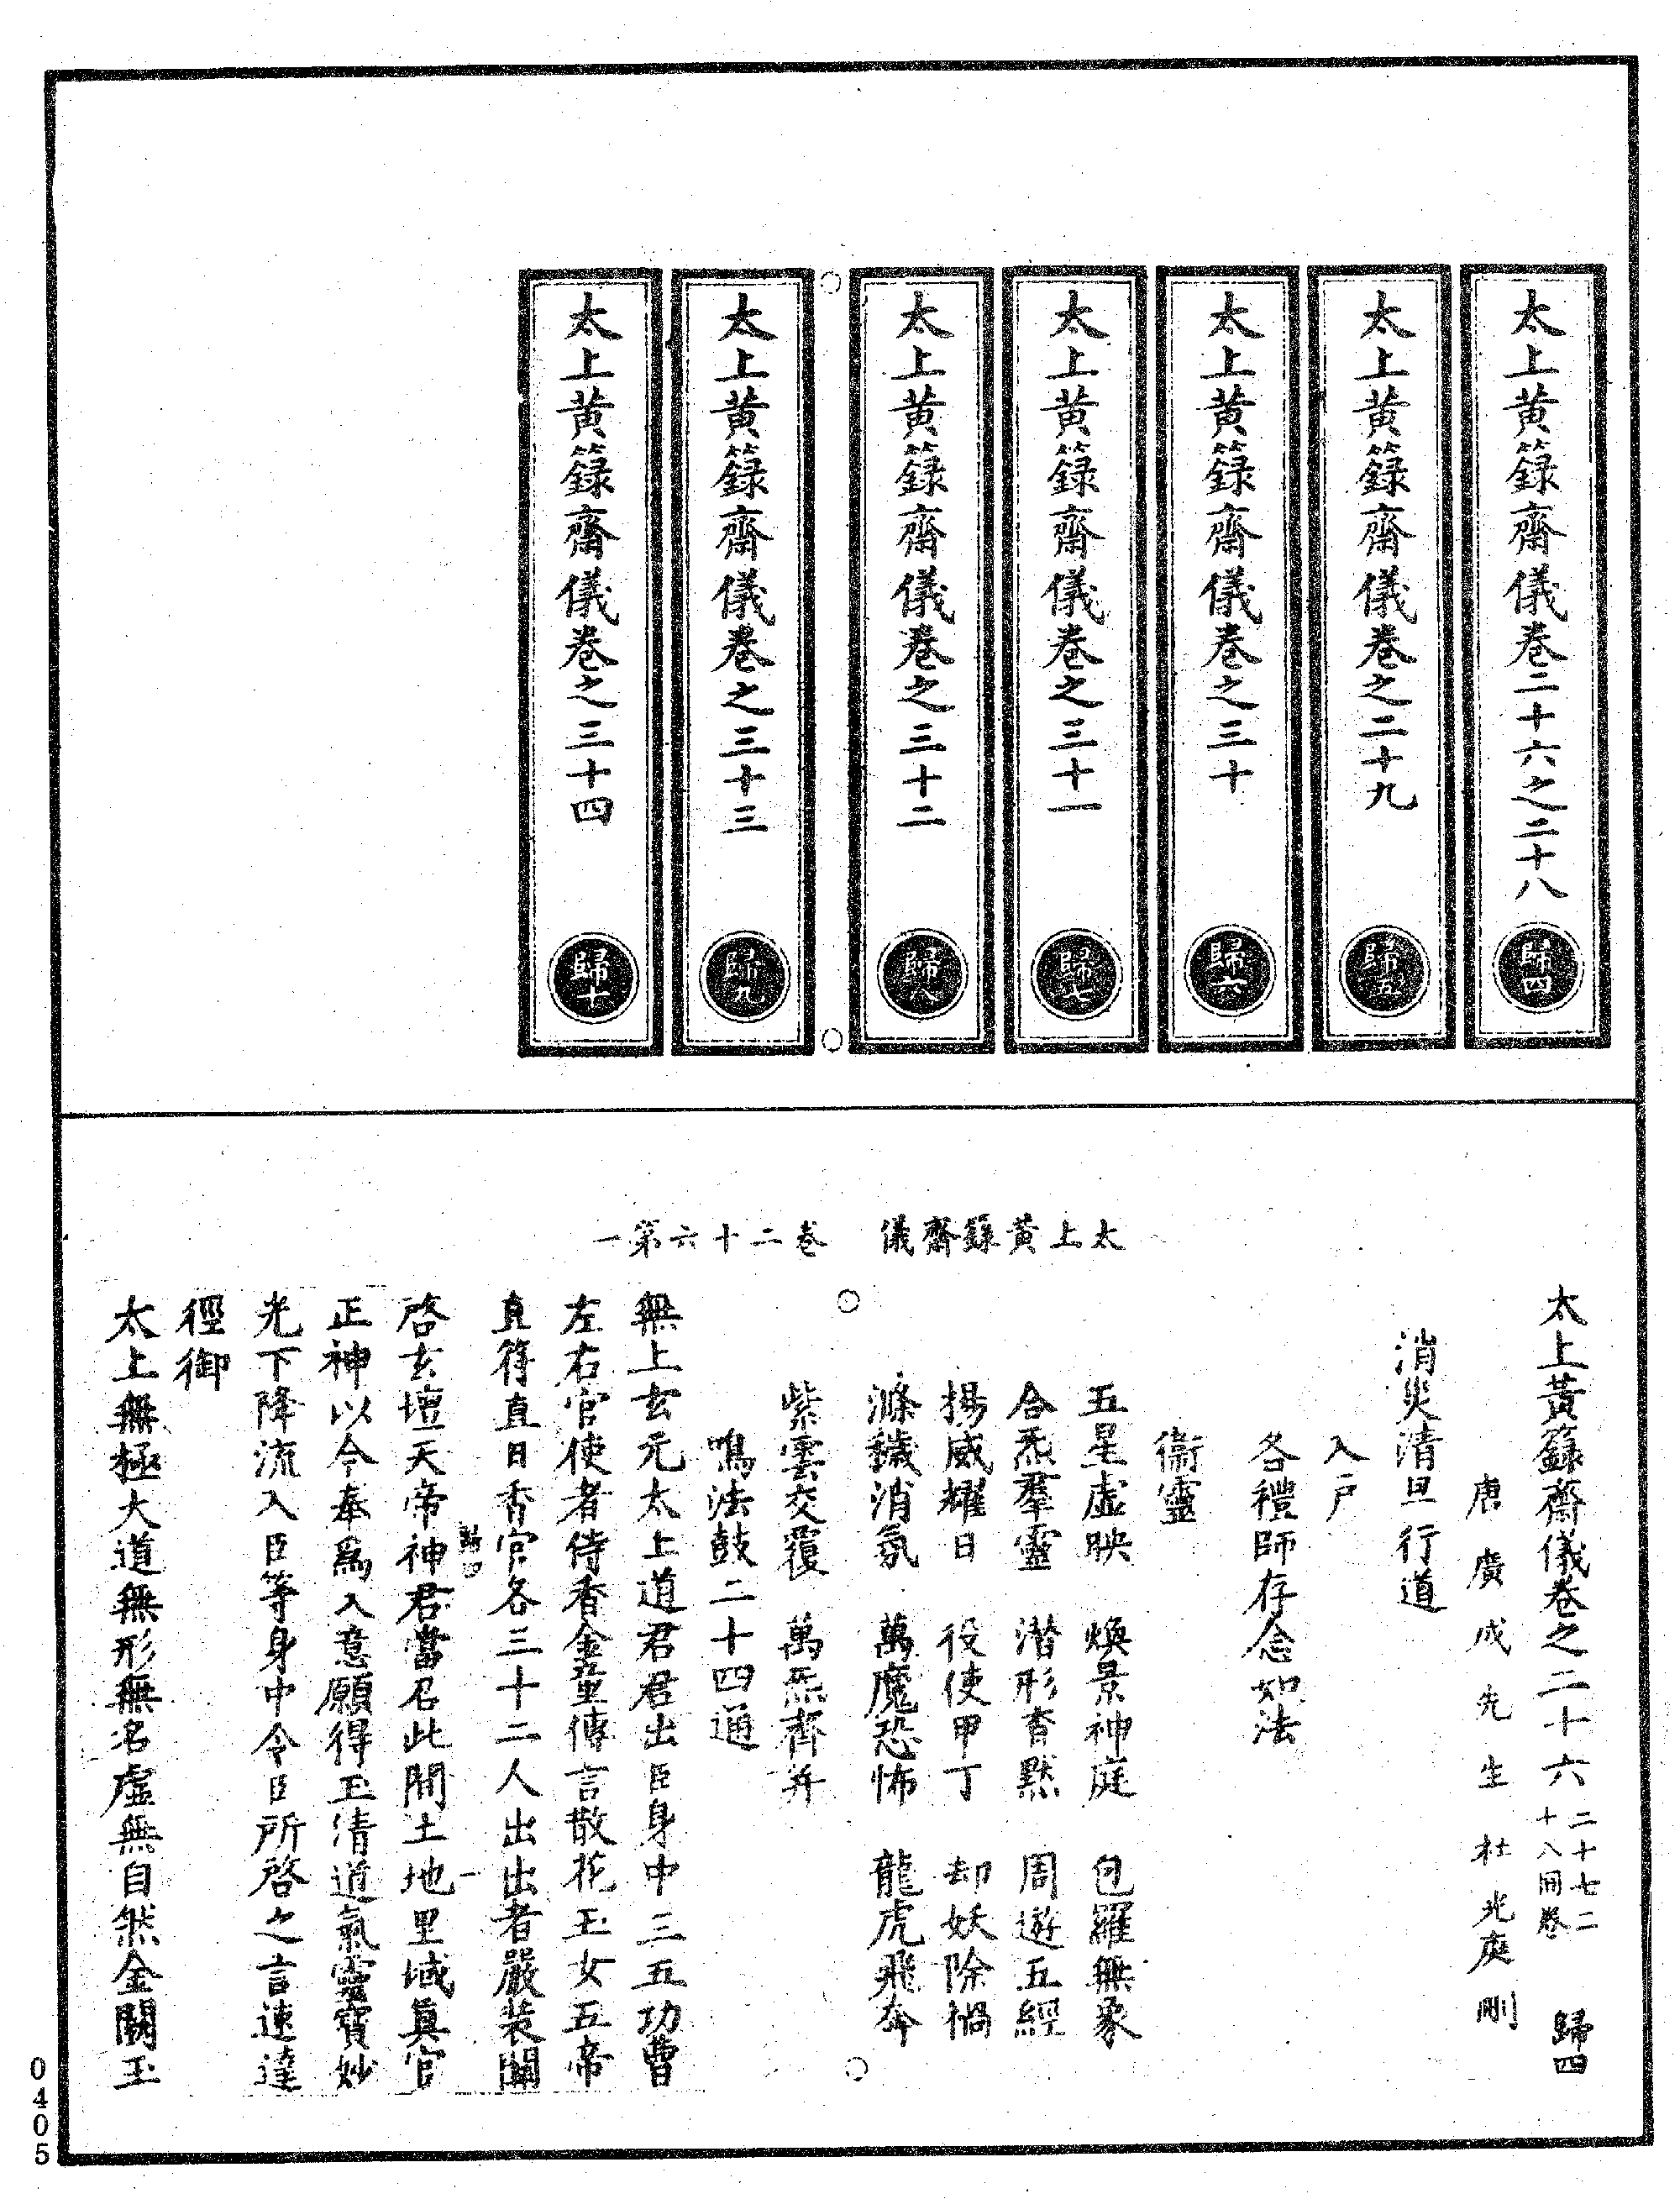 太上黃籙齋儀卷二十六之二十八 歸四
太上黃籙齋儀卷之二十九 歸五
太上黃籙齋儀卷之三十 歸六
太上黃籙齋儀卷之三十一 歸七
太上黃籙齋儀卷之三十二 歸八
太上黃籙齋儀卷之三十三 歸九
太上黃籙齋儀卷之三十四 歸十
太上黃籙齋儀 卷二十六第一
太上黃籙齋儀卷之二十六 二十七二十八同卷 歸四
唐廣成先生杜光庭刪
消災清旦行道
入戶
各禮師存念如法
衞靈
五星虛映 煥景神庭 包羅無象
合炁羣靈 潛形杳默 周遊五經
揚威耀日 役使甲丁 却妖除禍
滌穢消氛 萬魔恐怖 龍虎飛奔
紫雲交覆 萬炁齊并
鳴法鼓二十四通
無上玄元太上道君君出臣身中三五功曹
左右官使者侍香金童傳言散花玉女五帝
直符直日香官各三十二人出出者嚴裝關
歸四 一
啓玄壇天帝神君當召此間土地里域真官
正神以今奉爲入意願得玉清道氣靈寶妙
光下降流入臣等身中令臣所啓之言速達
徑御
太上無極大道無形無名虛無自然金闕玉
0405